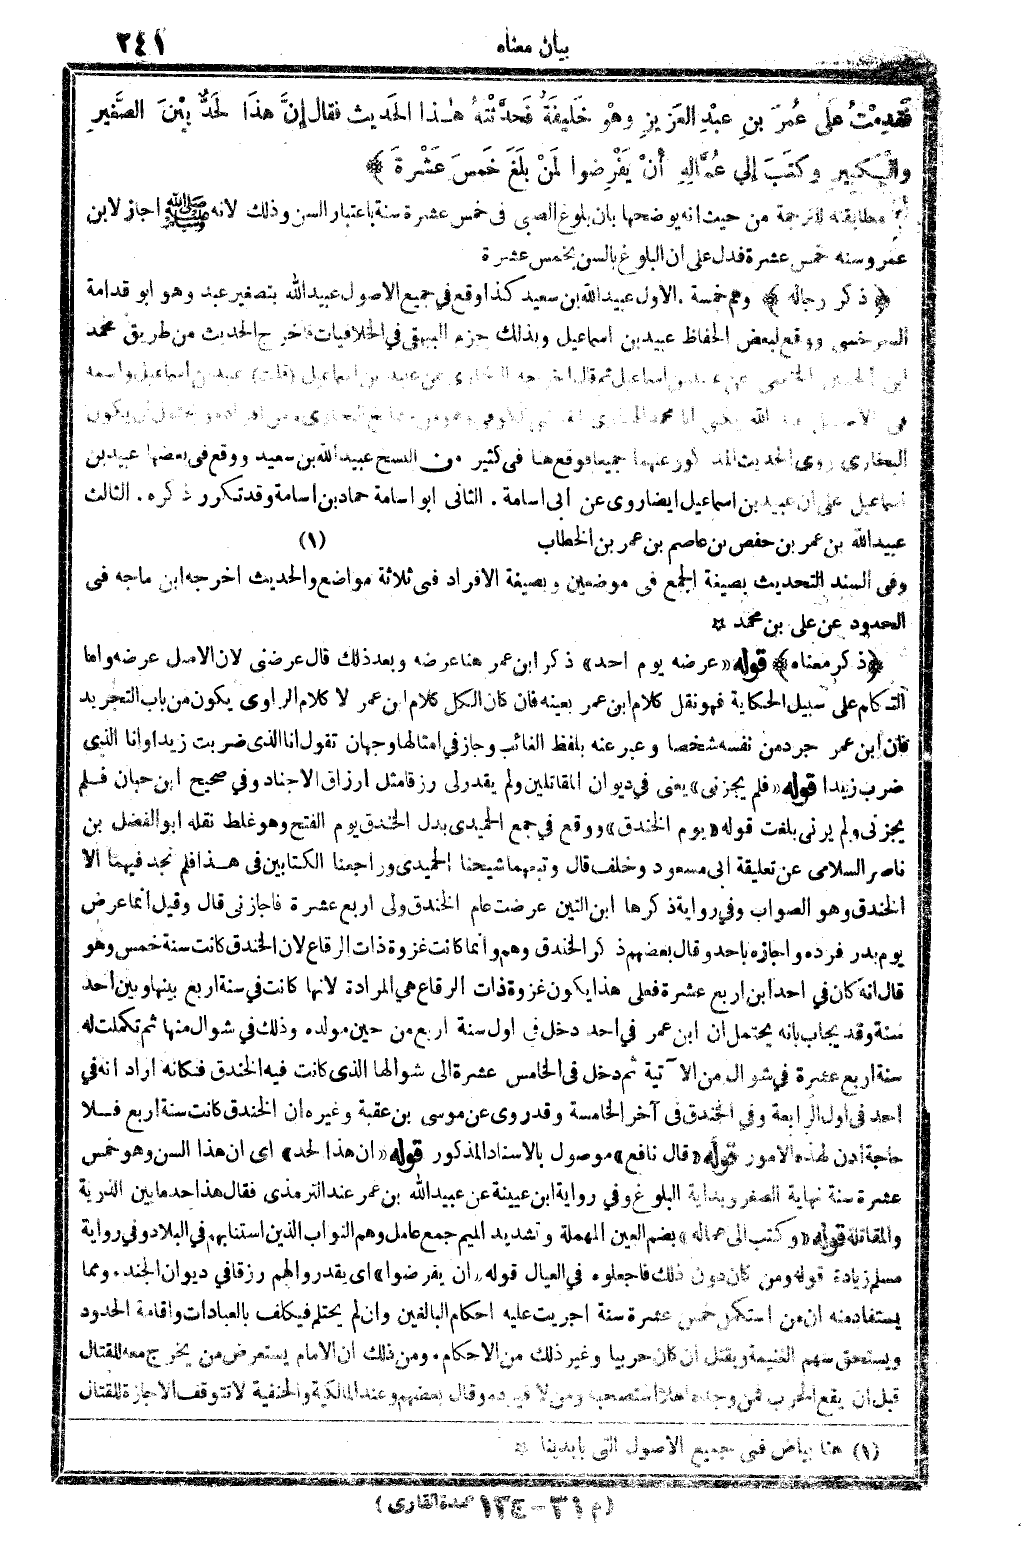 بيان معناه ٢٤١
فَقَدِمْتُ عَلَى عُمَرَ بنِ عبْدِ العَزِيزِ وهْوَ خَلِيفَةٌ فَحَدَّثْتُهُ هٰذا الحَدِيثَ فقال إنَّ هذَا لَحَدٌّ بيْنَ الصَّغيرِ
والْكَبِيرِ وكتَبَ إلي عُمَّالِهِ أنْ يَفْرِضوا لَمنْ بلَغَ خَمسَ عَشْرةَ ﴾
مطابقته للترجمة من حيث انه يوضحها بان بلوغ الصبى فى خمس عشرة سنة باعتبار السن وذلك لانه ﷺ اجاز لابن
عمر وسنه خمس عشرة فدل على ان البلوغ بالسن بخمس عشرة
﴿ ذكر رجاله ﴾ وهم خمسة . الاول عبيد الله بن سعيد كذا وقع في جميع الاصول عبيد الله بتصغير عبد وهو ابو قدامة
السرخسى ووقع لبعض الحفاظ عبيد بن اسماعيل وبذلك جزم البيهقى في الخلافيات فاخرج الحديث من طريق محمد
ابن الحسين الخثعمى عن عبيد بن اسماعيل ثم قال اخرجه البخارى عن عبيد بن اسماعيل (قلت) عبيد بن اسماعيل واسمه
فى الاصل عبد الله يكنى ابا محمد الهبارى القرشى الكوفى وهو من مشايخ البخارى ومن افراده ويحتمل ان يكون
البخارى روى الحديث المذكور عنهما جميعا فوقع هنا فى كثير من النسخ عبيد الله بن سعيد ووقع فى بعضها عبيد بن
اسماعيل على ان عبيد بن اسماعيل ايضا روى عن ابى اسامة . الثانى ابو اسامة حماد بن اسامة وقد تكرر ذكره . الثالث
عبيد الله بن عمر بن حفص بن عاصم بن عمر بن الخطاب (١)
وفى السند التحديث بصيغة الجمع فى موضعين وبصيغة الافراد فى ثلاثة مواضع والحديث اخرجه ابن ماجه فى
الحدود عن على بن محمد ✡
﴿ ذكر معناه ﴾ قوله «عرضه يوم احد» ذكر ابن عمر هنا عرضه وبعد ذلك قال عرضنى لان الاصل عرضه واما
التكلم على سبيل الحكاية فهو نقل كلام ابن عمر بعينه فان كان الكل كلام ابن عمر لا كلام الراوى يكون من باب التجريد
فان ابن عمر جرد من نفسه شخصا وعبر عنه بلفظ الغائب وجاز في امثالها وجهان تقول انا الذى ضربت زيدا وانا الذى
ضرب زيدا قوله «فلم يجزنى» يعنى في ديوان المقاتلين ولم يقدر لى رزقا مثل ارزاق الاجناد وفي صحيح ابن حبان فلم
يجزنى ولم يرنى بلغت قوله «يوم الخندق» ووقع في جمع الحميدى بدل الخندق يوم الفتح وهو غلط نقله ابو الفضل بن
ناصر السلامى عن تعليقة ابى مسعود وخلف قال وتبعهما شيخنا الحميدى وراجعنا الكتابين فى هذا فلم نجد فيهما الا
الخندق وهو الصواب وفي رواية ذكرها ابن التين عرضت عام الخندق ولى اربع عشرة فاجازنى قال وقيل انما عرض
يوم بدر فرده واجازه باحد وقال بعضهم ذكر الخندق وهم وانما كانت غزوة ذات الرقاع لان الخندق كانت سنة خمس وهو
قال انه كان في احد ابن اربع عشرة فعلى هذا يكون غزوة ذات الرقاع هي المرادة لانها كانت في سنة اربع بينها وبين احد
سنة وقد يجاب بانه يحتمل ان ابن عمر في احد دخل في اول سنة اربع من حين مولده وذلك في شوال منها ثم تكملت له
سنة اربع عشرة في شوال من الآتية ثم دخل فى الخامس عشرة الى شوالها الذى كانت فيه الخندق فكانه اراد انه في
احد فى اول الرابعة وفي الخندق فى آخر الخامسة وقد روى عن موسى بن عقبة وغيره ان الخندق كانت سنة اربع فلا
حاجة اذن لهذه الامور قوله «قال نافع» موصول بالاسناد المذكور قوله «ان هذا لحد» اى ان هذا السن وهو خمس
عشرة سنة نهاية الصغر وبداية البلوغ وفي رواية ابن عيينة عن عبيد الله بن عمر عند الترمذى فقال هذا حد ما بين الذرية
والمقاتلة قوله «وكتب الى عماله» بضم العين المهملة وتشديد الميم جمع عامل وهم النواب الذين استنابهم في البلاد وفي رواية
مسلم زيادة قوله ومن كان دون ذلك فاجعلوه في العيال قوله «ان يفرضوا» اى يقدروا لهم رزقا في ديوان الجند . ومما
يستفاد منه ان من استكمل خمس عشرة سنة اجريت عليه احكام البالغين وان لم يحتلم فيكلف بالعبادات واقامة الحدود
ويستحق سهم الغنيمة ويقتل ان كان حربيا وغير ذلك من الاحكام . ومن ذلك ان الامام يستعرض من يخرج معه للقتال
قبل ان يقع الحرب فمن وجده اهلا استصحبه ومن لا فيرده وقال بعضهم وعند المالكية والحنفية لا تتوقف الاجازة للقتال
(١) هنا بياض فى جميع الاصول التى بايدينا ✡
(م ٣١ - ١٣٤ عمدة القارى)